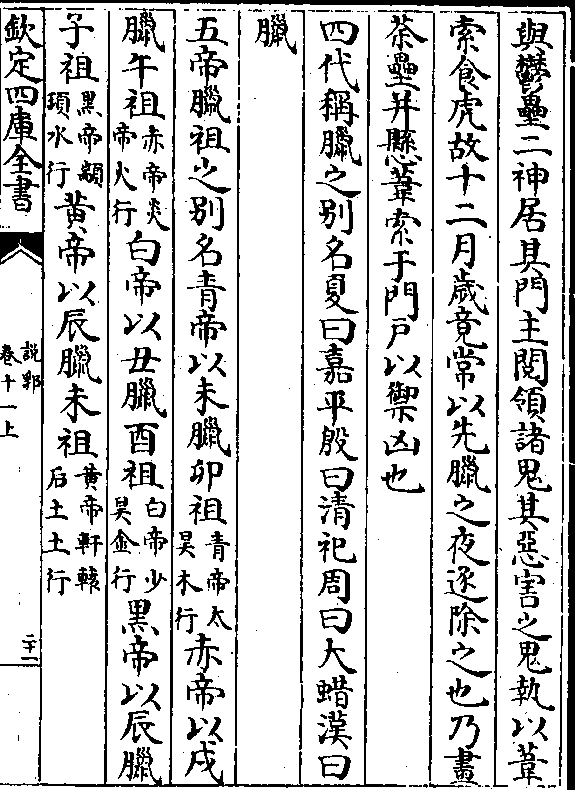 與鬱壘二神居其門主閲領諸鬼其惡害之鬼執以葦
索食虎故十二月歳竟常以先臘之夜逐除之也乃畫
荼壘并懸葦索于門戸以禦凶也
四代稱臘之别名夏曰嘉平殷曰清祀周曰大蜡漢曰
臘
五帝臘祖之别名青帝以未臘卯祖青帝太昊木行赤帝以戌
臘午祖赤帝炎帝火行白帝以丑臘酉祖白帝少昊金行黑帝以辰臘
子祖黑帝顓頊水行黃帝以辰臘未祖黃帝軒轅后土土行
欽定四庫全書
説郛
卷十一上
二十一